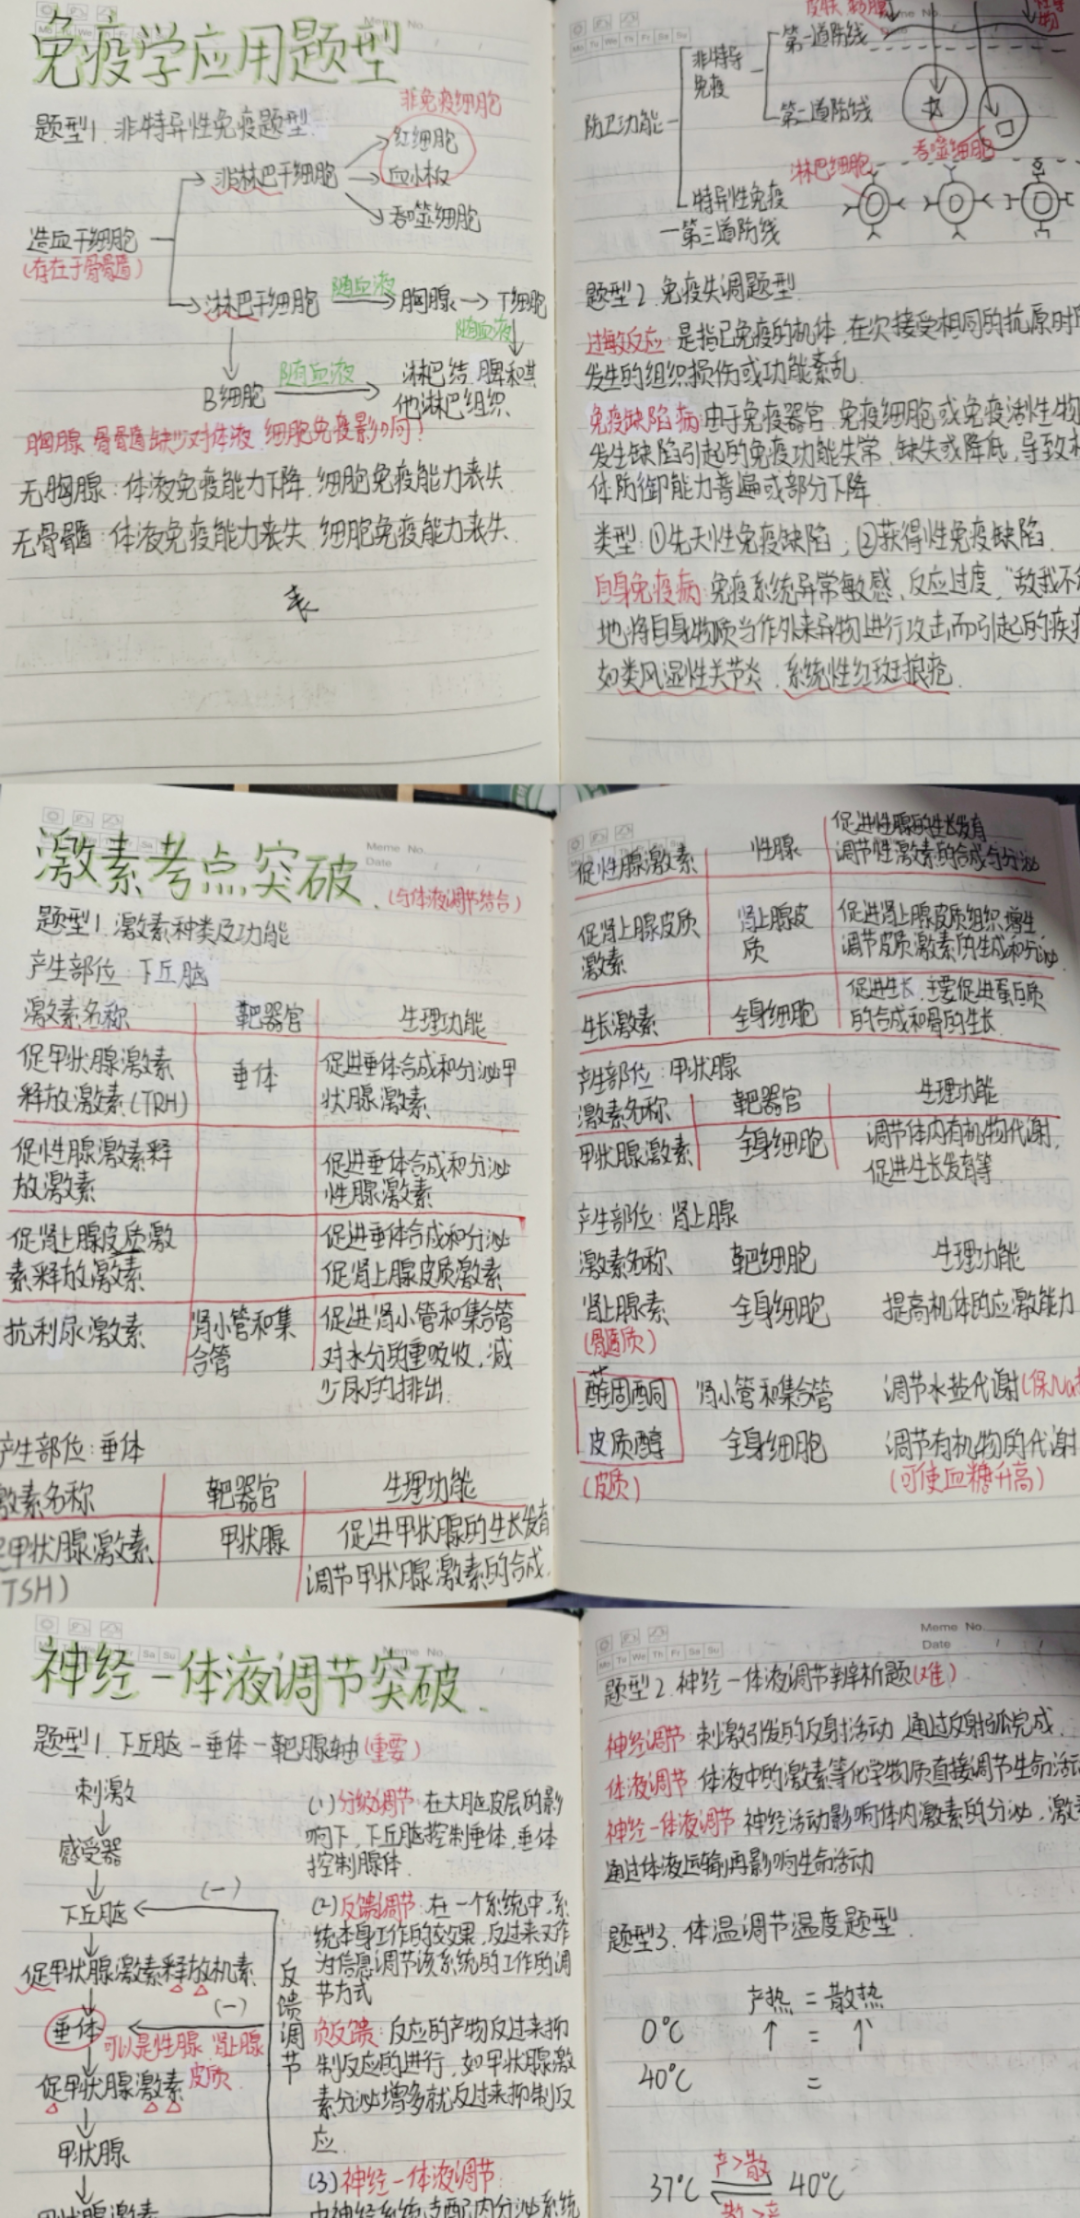 免疫学应用题型
题型1.非特异性免疫题型
非免疫细胞
红细胞
非淋巴干细胞
血小板
吞噬细胞
造血干细胞
(存在于骨骨髓)
淋巴干细胞 随血液 胸腺 T细胞
随血液
B细胞 随血液 淋巴结.脾和其
他淋巴组织.
胸腺.骨骨髓缺少对体液.细胞免疫影响?
无胸腺:体液免疫能力下降.细胞免疫能力丧失
无骨骨髓:体液免疫能力丧失.细胞免疫能力丧失.
Meme No.
第一道防线
非特异
免疫
第二道防线
防卫功能
吞噬细胞
淋巴细胞
特异性免疫
一第三道防线
题型2.免疫失调题型
过敏反应:是指已免疫的机体,在次接受相同的抗原时
发生的组织损伤或功能紊乱
免疫缺陷病:由于免疫器官.免疫细胞或免疫活性物
发生缺陷引起的免疫功能失常.缺失或降低,导致
体防御能力普遍或部分下降
类型:①先天性免疫缺陷;②获得性免疫缺陷.
自身免疫病:免疫系统异常敏感、反应过度,“敌我不
地将自身物质当作外来异物进行攻击而引起的疾
如类风湿性关节炎.系统性红斑狼疮.
Meme No.
Date
激素考点突破.(与体液调节结合)
题型1.激素种类及功能
产生部位:下丘脑
激素名称 靶器官 生理功能
促甲状腺激素 垂体 促进垂体合成和分泌甲
释放激素(TRH) 状腺激素
促性腺激素释 促进垂体合成和分泌
放激素 性腺激素
促肾上腺皮质激 促进垂体合成和分泌
素释放激素 促肾上腺皮质激素
抗利尿激素 肾小管和集 促进肾小管和集合管
合管 对水分的重吸收,减
少尿的排出.
产生部位:垂体
激素名称 靶器官 生理功能
促甲状腺激素 甲状腺 促进甲状腺的生长发育
TSH) 调节甲状腺激素的合成.
促性腺激素 性腺 促进性腺的生长发育
调节性激素的合成与分泌
促肾上腺皮质 肾上腺皮 促进肾上腺皮质组织增生.
激素 质 调节皮质激素的生成和分泌.
生长激素 全身细胞 促进生长.主要促进蛋白质
的合成和骨的生长.
产生部位:甲状腺
激素名称 靶器官 生理功能
甲状腺激素 全身细胞 调节体内有机物代谢,
促进生长发育等.
产生部位:肾上腺
激素名称 靶细胞 生理功能
肾上腺素 全身细胞 提高机体的应激能力
(骨髓质)
醛固酮 肾小管和集合管 调节水盐代谢(保Na
皮质醇 全身细胞 调节有机物的代谢
(皮质) (可使血糖升高)
Meme No.
神经-体液调节突破.
题型1.下丘脑-垂体-靶腺轴(重要)
刺激
感受器
下丘脑
(-)
促甲状腺激素释放机素
(-)
垂体
可以是性腺.肾上腺
皮质.
促甲状腺激素
甲状腺
甲状腺激素
反馈调节
(1)分级调节:在大脑皮层的影
响下,下丘脑控制垂体,垂体
控制腺体.
(2)反馈调节:在一个系统中,系
统本身工作的效果,反过来又作
为信息调节该系统的工作的调
节方式
负反馈:反应的产物反过来抑
制反应的进行,如甲状腺激
素分泌增多就反过来抑制反
应.
(3)神经-体液调节:
由神经系统支配内分泌系统
Meme No.
Date
题型2.神经-体液调节辨析题(难)
神经调节:刺激引发的反射活动.通过反射弧完成.
体液调节:体液中的激素等化学物质直接调节生命活
神经-体液调节:神经活动影响体内激素的分泌,激
通过体液运输再影响生命活动
题型3.体温调节温度题型.
产热 = 散热
0℃ ↑ = ↑
40℃ =
产>散
37℃ 40℃
散>产